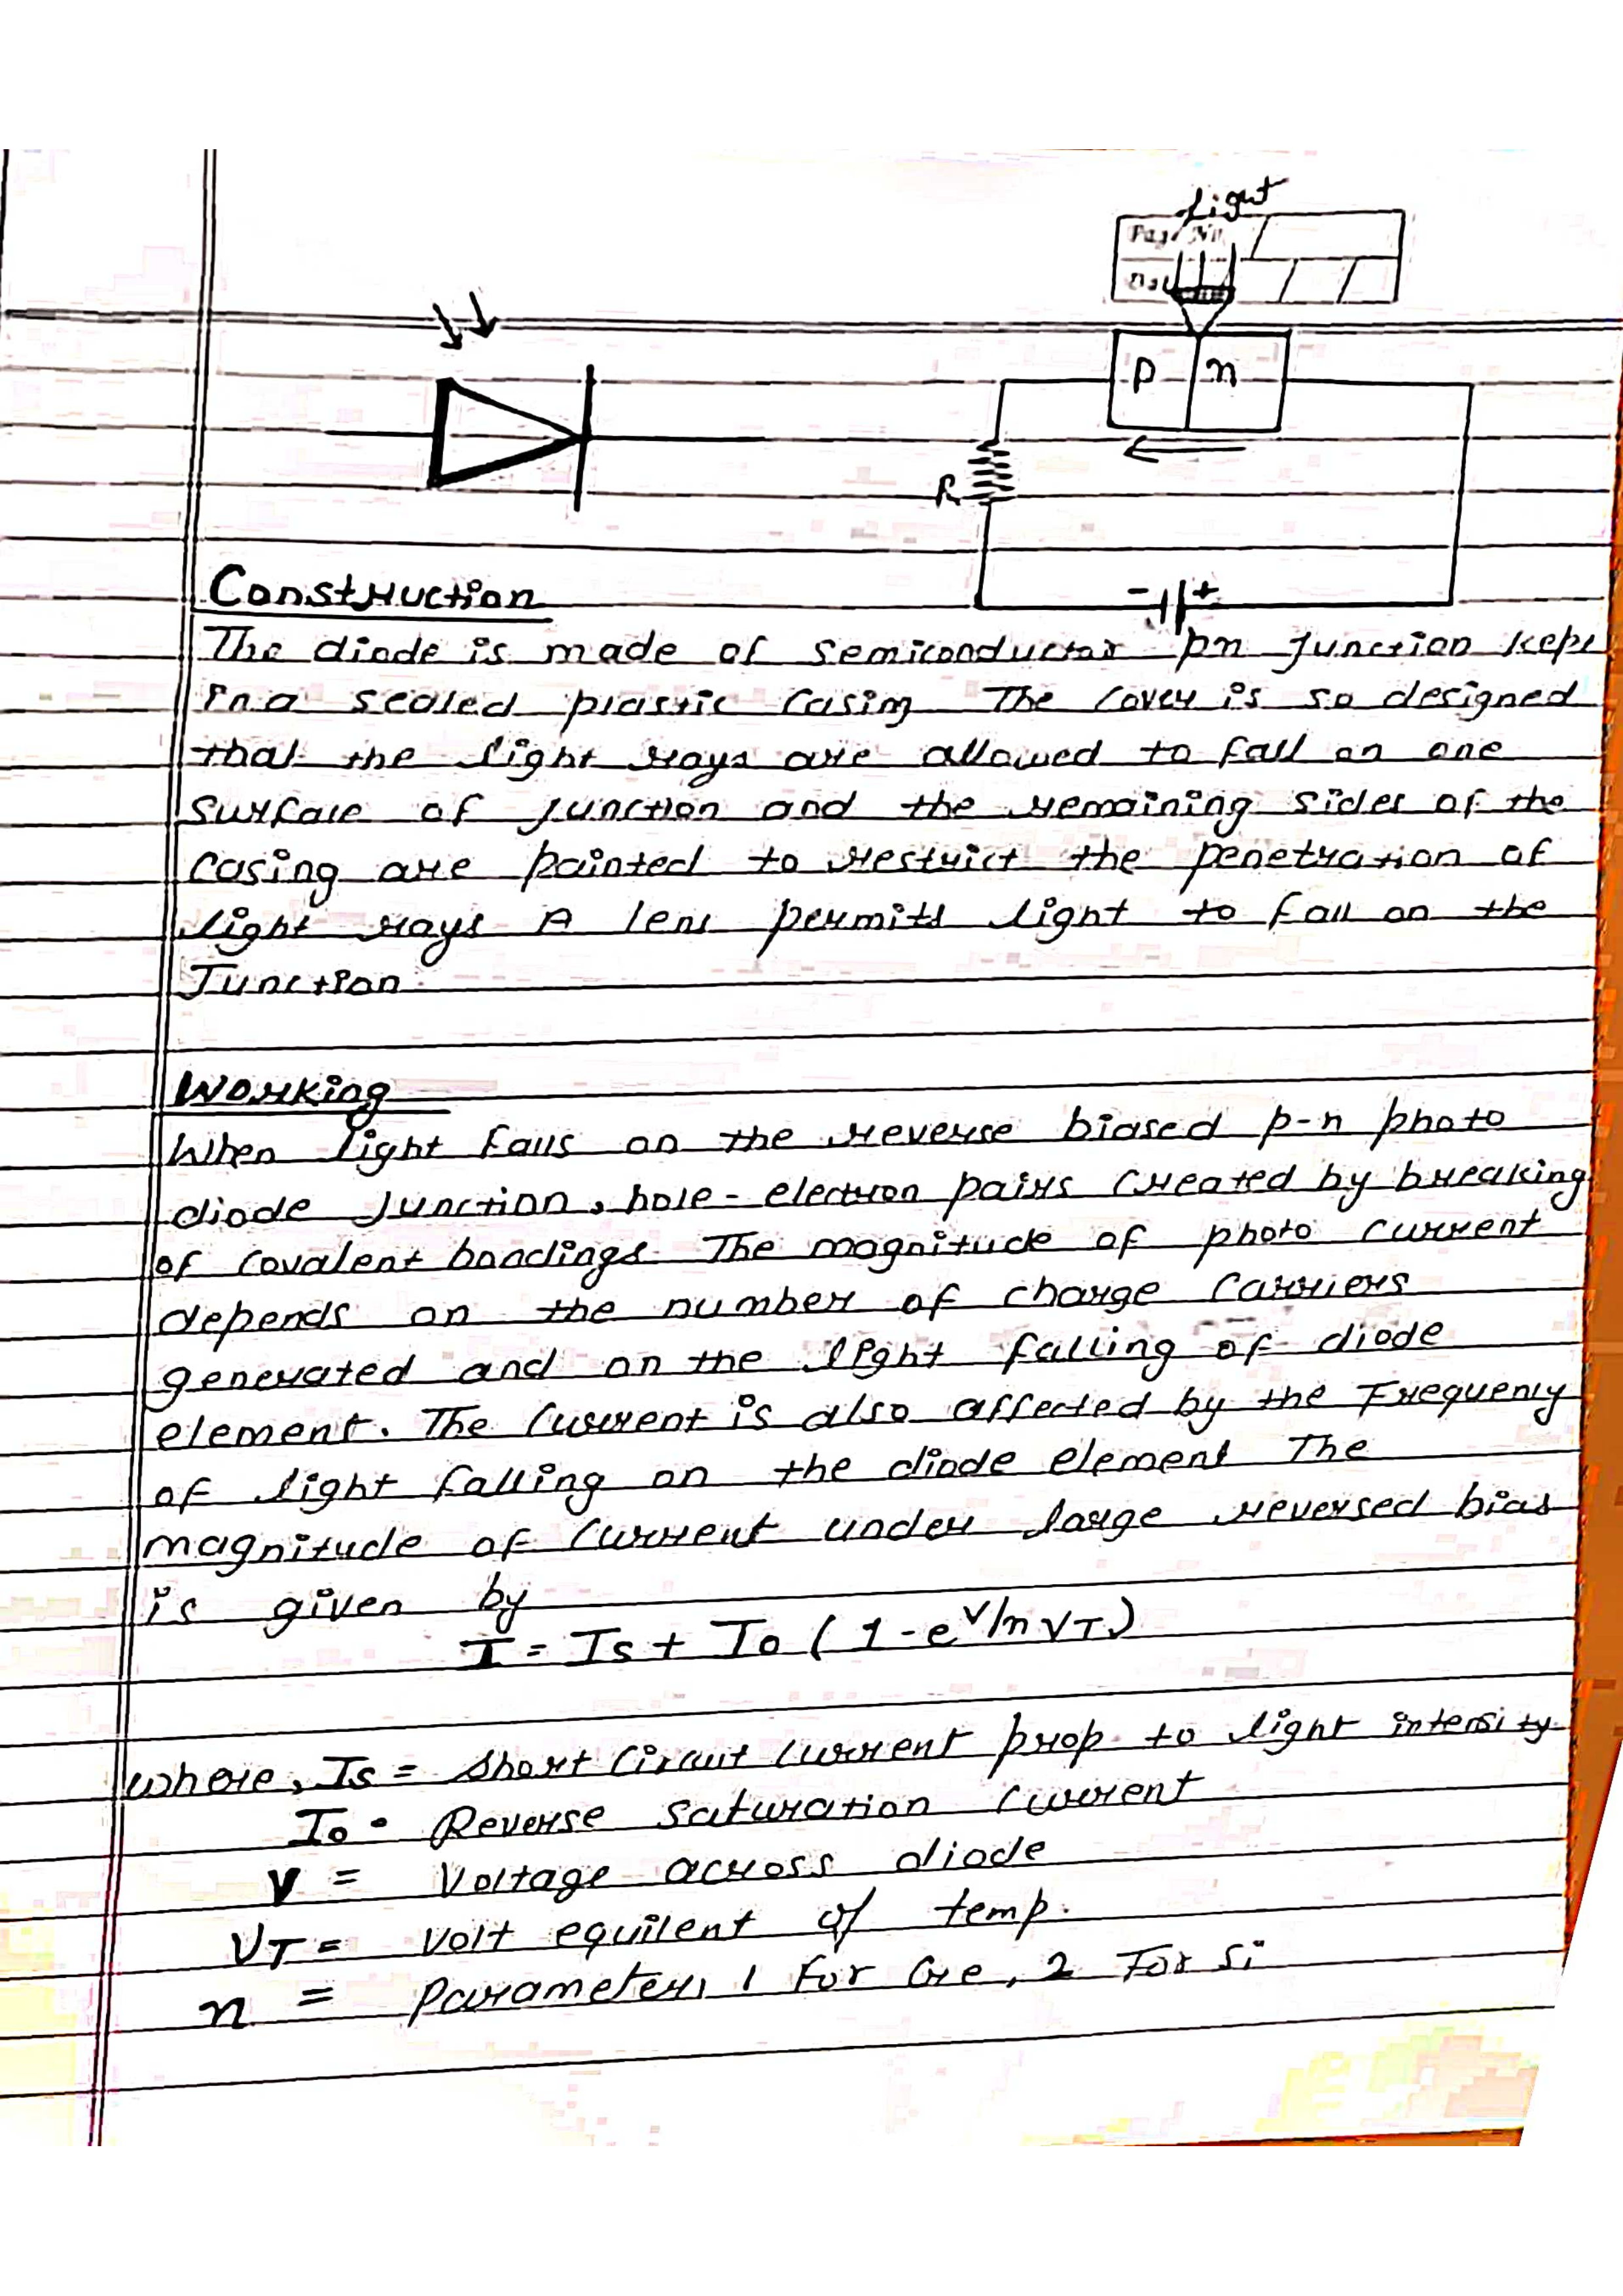 Light
Page No.
Dat
p n
R
- +
Construction
The diode is made of semiconductor pn junction kept
in a sealed plastic casing The cover is so designed
that the light rays are allowed to fall on one
surface of junction and the remaining sides of the
casing are painted to restrict the penetration of
light rays A lens permits light to fall on the
Junction.
Working
When light falls on the reverse biased p-n photo
diode Junction, hole-electron pairs created by breaking
of covalent bondings. The magnitude of photo current
depends on the number of charge carriers
generated and on the light falling of diode
element. The current is also affected by the Frequency
of light falling on the diode element The
magnitude of current under large reversed bias
is given by
I = Is + Io (1 - e^V/nVT)
where, Is = Short Circuit current prop. to light intensity
Io = Reverse saturation current
V = Voltage across diode
VT = Volt equilent of temp.
n = Parameter, 1 For Ge, 2 For Si